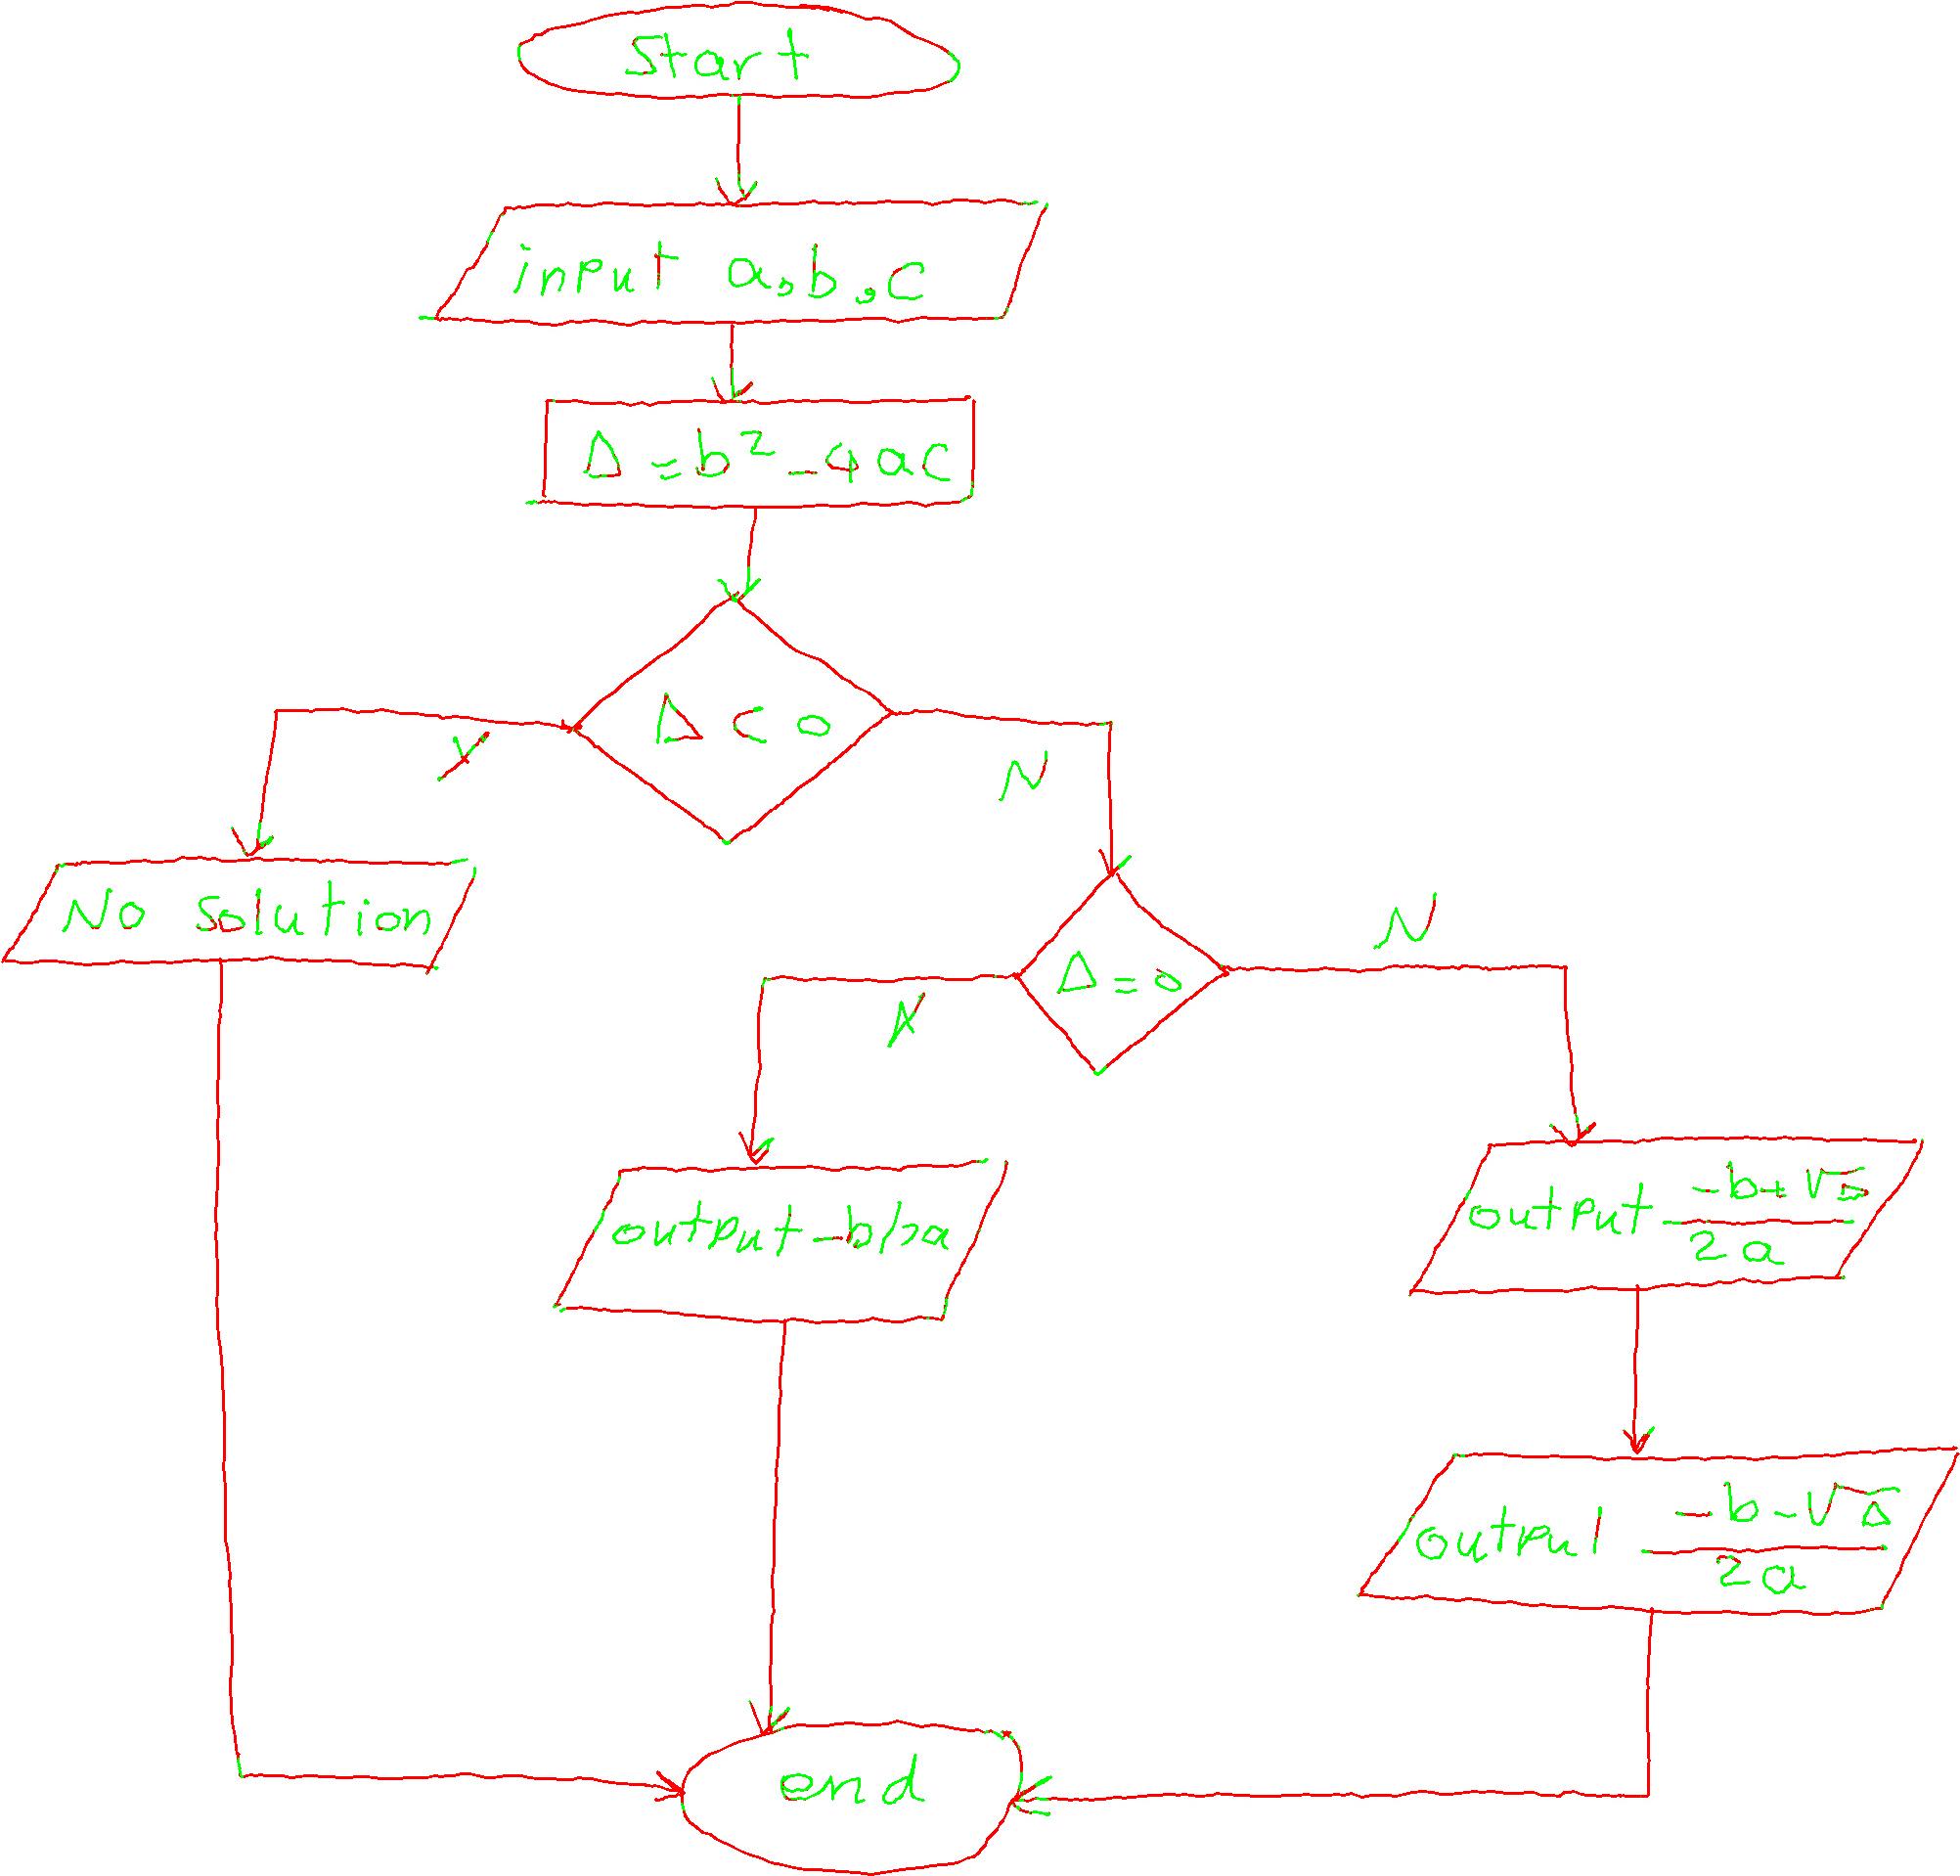 Start
input a,b,c
Δ = b² - 4 ac
Δ < 0
Y
N
No solution
Δ = 0
Y
N
output -b/2a
output (-b+√Δ)/2a
output (-b-√Δ)/2a
end